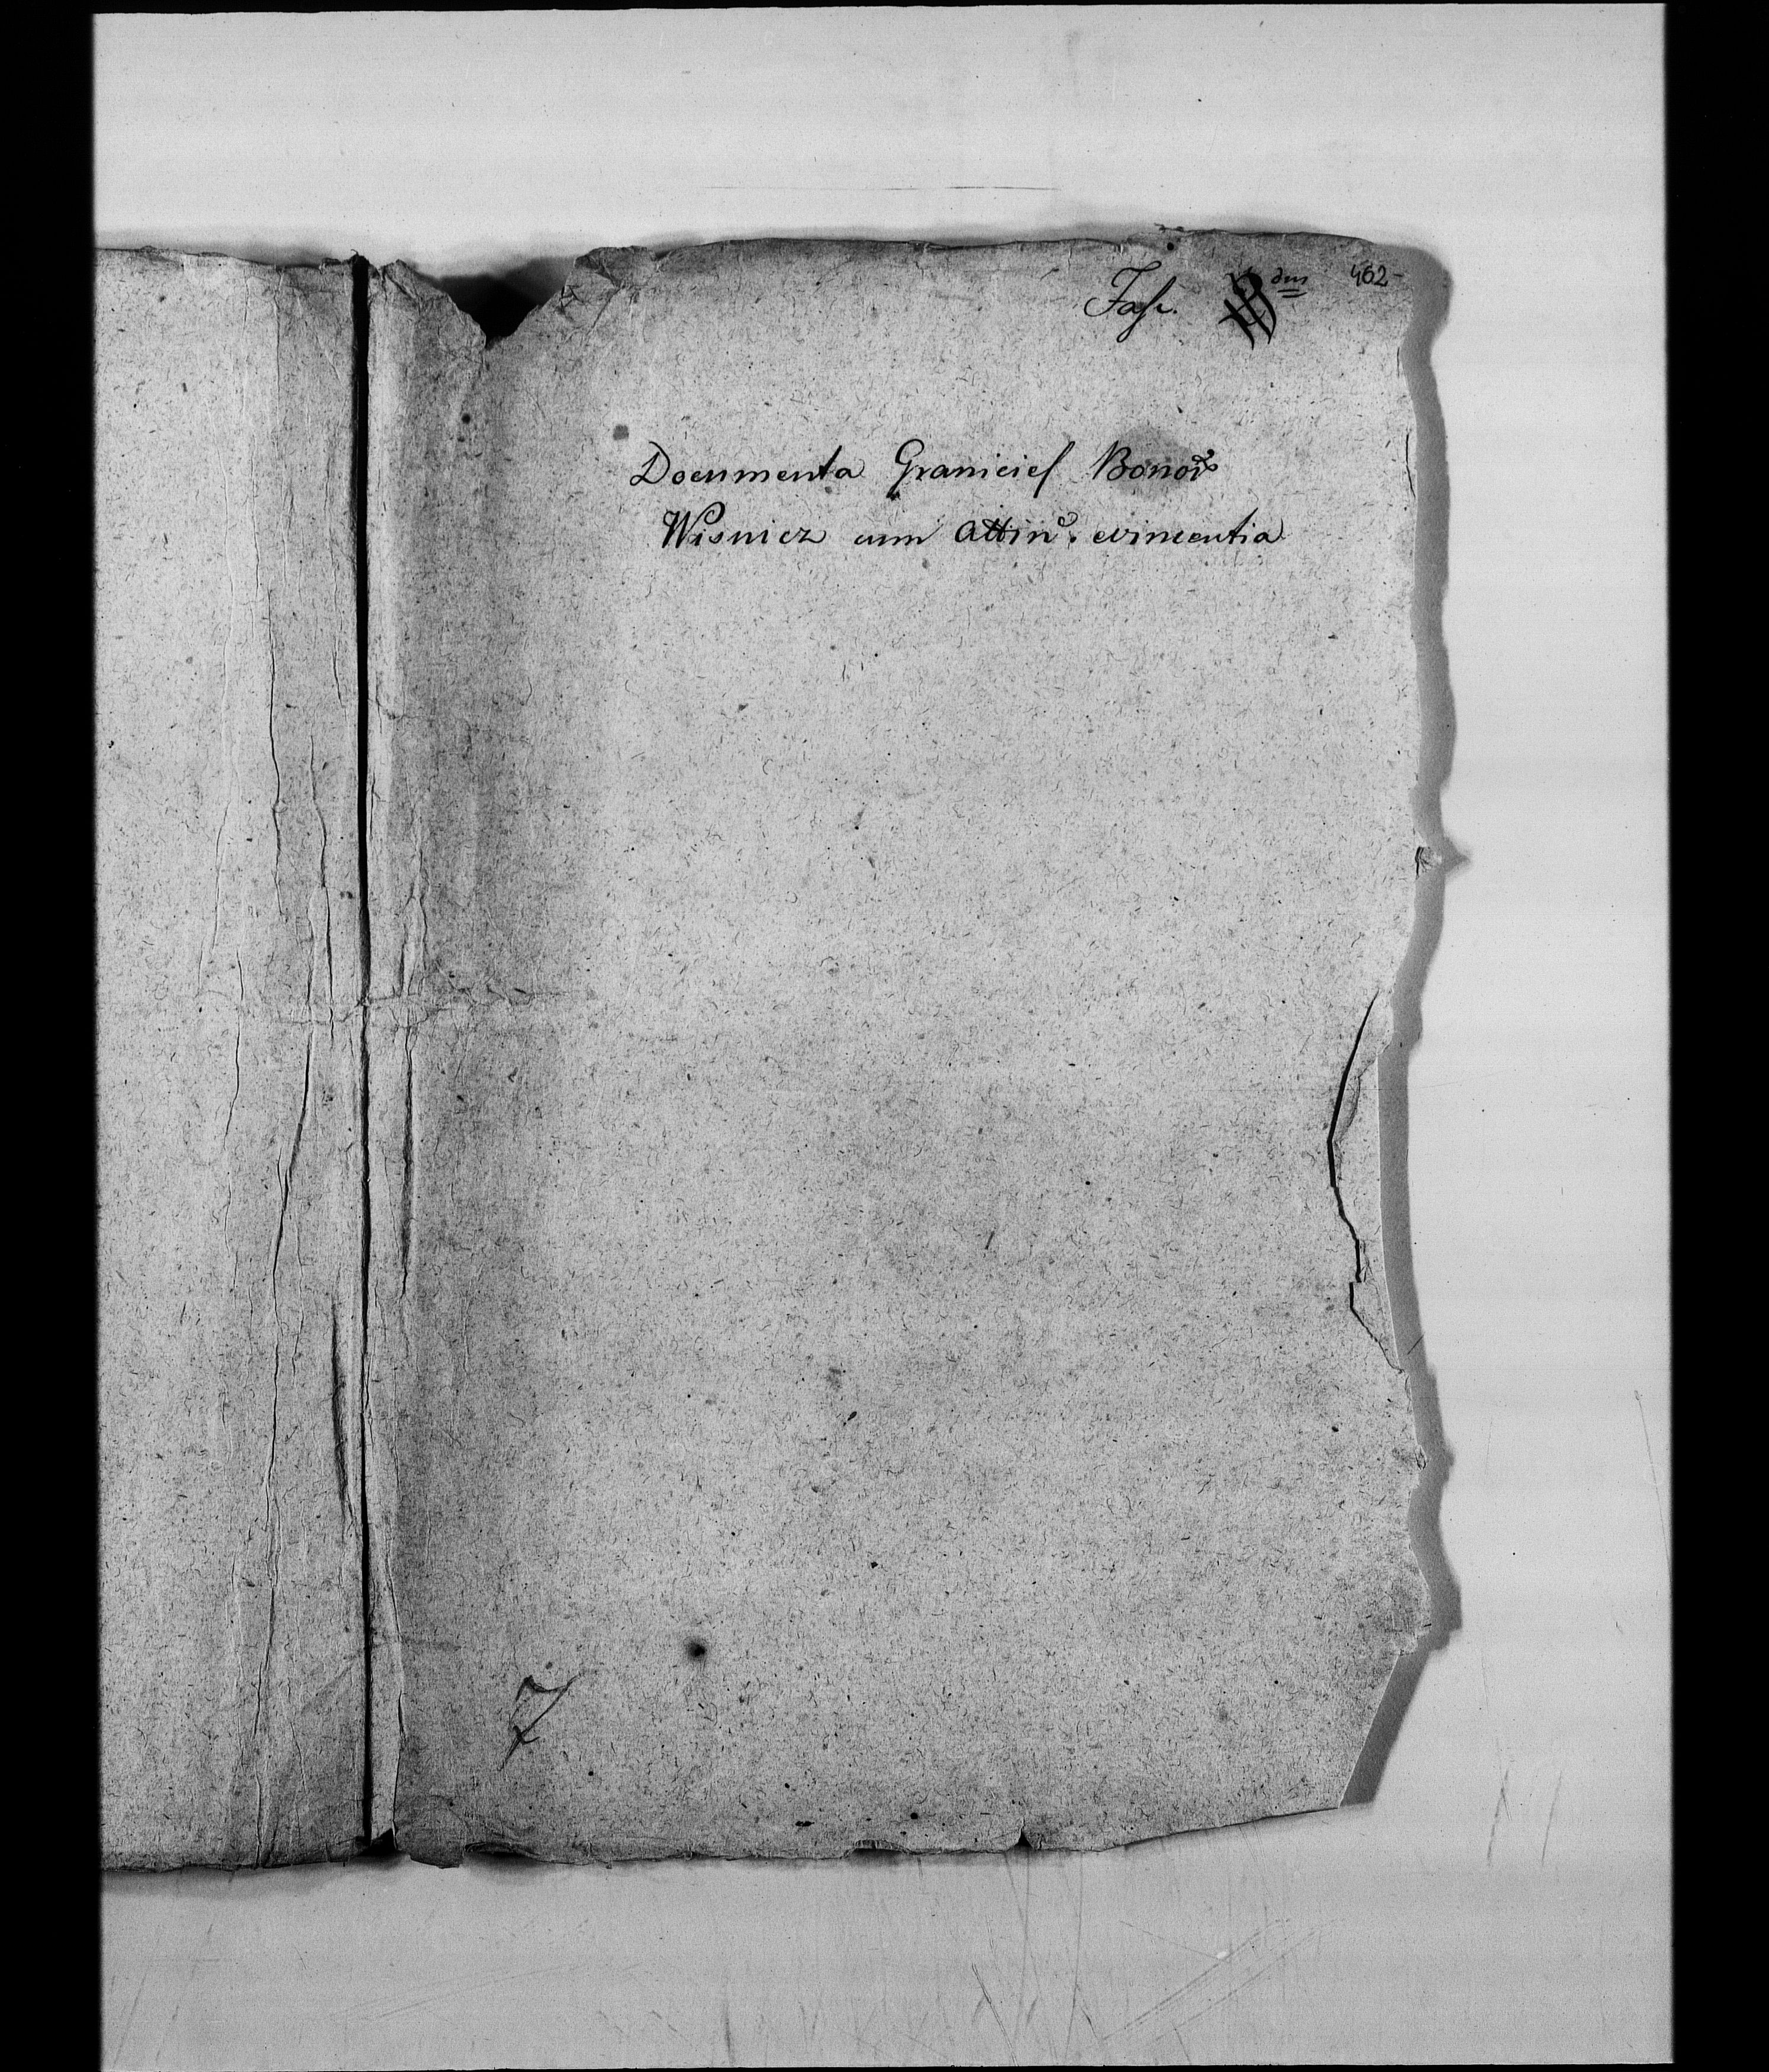 Fasc. dus 462-
Documenta Granicies Bonor̄
Wisnicz cum Attin. evincentia
7